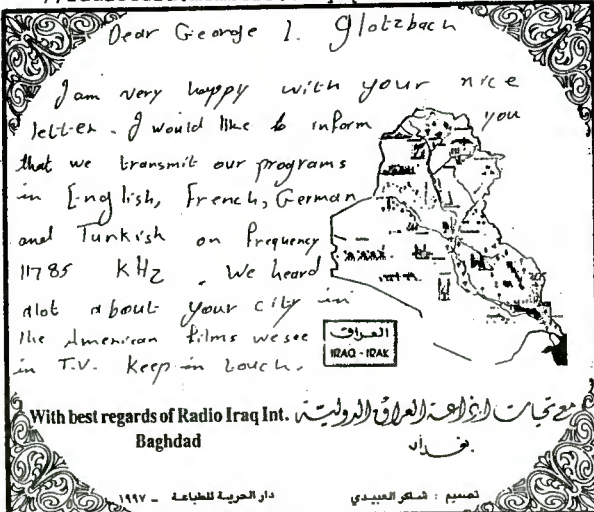 Dear George L. Glotzbach
I am very happy with your nice
letter. I would like to inform you
that we transmit our programs
in English, French, German
and Turkish on frequency
11785 KHz. We heard
alot about your city in
the American films we see
in T.V. Keep in touch.
العراق
IRAQ - IRAK
With best regards of Radio Iraq Int. مع تحيات إذاعة العراق الدولية
Baghdad بغداد
دار الحرية للطباعة - ١٩٩٧ تصميم : شاكر العبيدي